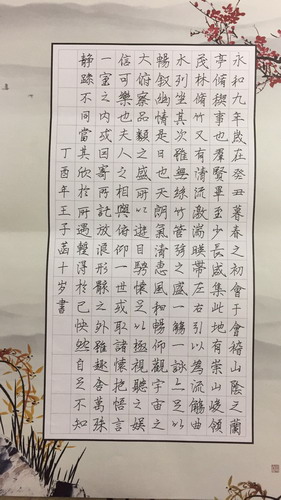 永和九年歲在癸丑暮春之初會于會稽山陰之蘭
亭脩禊事也羣賢畢至少長咸集此地有崇山峻領
茂林脩竹又有清流激湍暎帶左右引以為流觴曲
水列坐其次雖無絲竹管弦之盛一觴一詠亦足以
暢敘幽情是日也天朗氣清惠風和暢仰觀宇宙之
大俯察品類之盛所以遊目騁懷足以極視聽之娛
信可樂也夫人之相與俯仰一世或取諸懷抱悟言
一室之內或因寄所託放浪形骸之外雖趣舍萬殊
靜躁不同當其欣於所遇暫得於己怏然自足不知
丁酉年王子菡十歲書